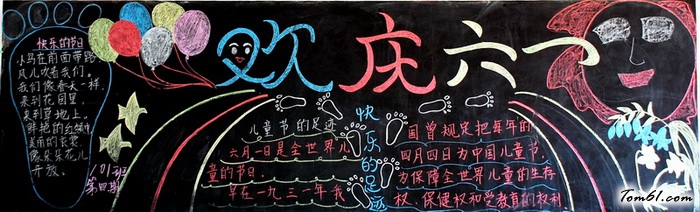 欢庆六一
快乐的节日
小鸟在前面带路
风儿吹着我们.
我们像春天一样,
来到花园里,
来到草地上.
鲜艳的红领巾
美丽的衣裳,
像朵朵花儿
开放.
1.01班
第四期
儿童节的足迹
六月一日是全世界儿
童的节日.
早在一九三一年我
快乐的足迹
国曾规定把每年的
四月四日为中国儿童节,
为保障全世界儿童的生存
权,保健权和受教育的权利
Tom61.com